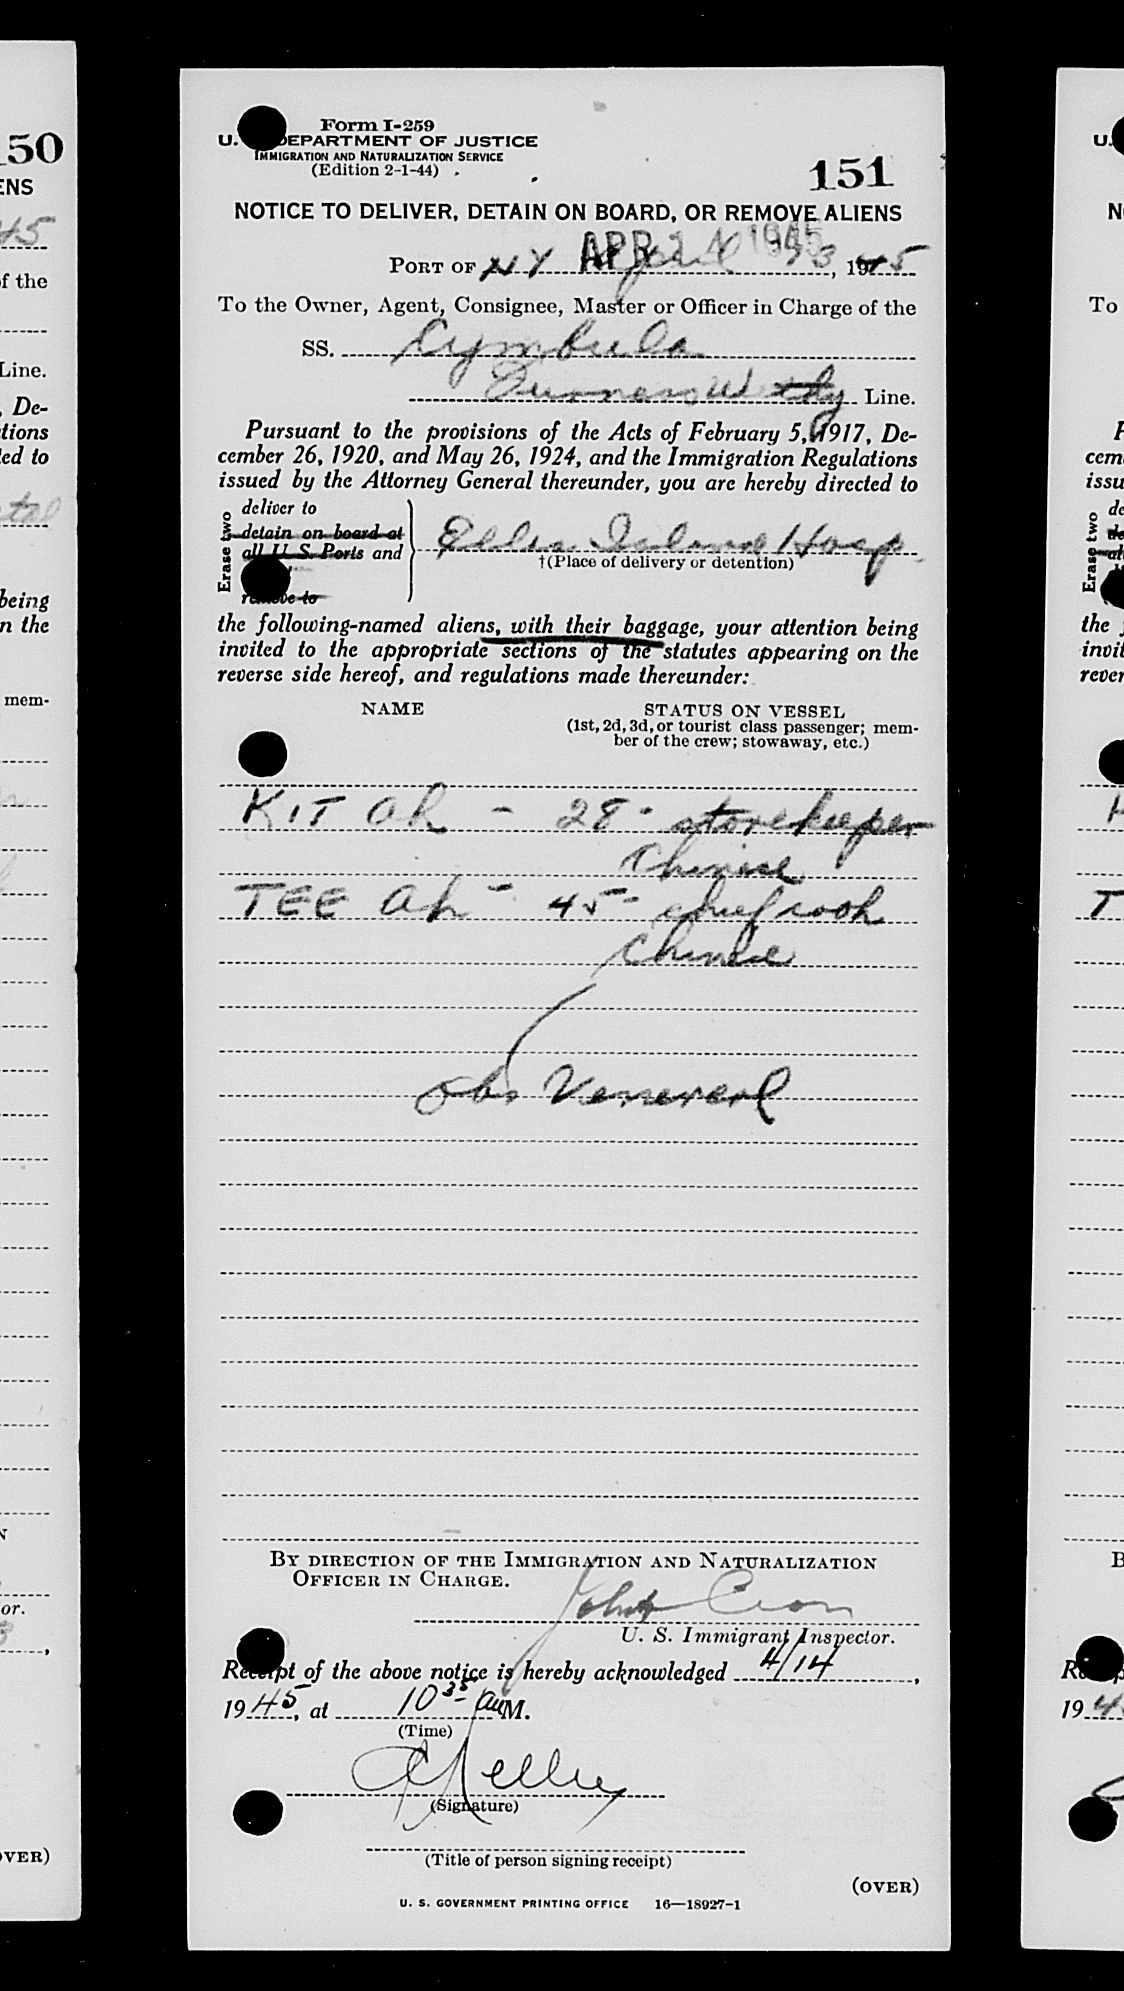 Form I-259
U. DEPARTMENT OF JUSTICE
IMMIGRATION AND NATURALIZATION SERVICE
(Edition 2-1-44)
151
NOTICE TO DELIVER, DETAIN ON BOARD, OR REMOVE ALIENS
APR 14 1945
PORT OF NY April 13, 1945
To the Owner, Agent, Consignee, Master or Officer in Charge of the
SS. Cymbula
Furness Withy Line.
Pursuant to the provisions of the Acts of February 5, 1917, De-
cember 26, 1920, and May 26, 1924, and the Immigration Regulations
issued by the Attorney General thereunder, you are hereby directed to
Erase two
deliver to
detain on board at
all U. S. Ports and
remove to
Ellis Island Hosp.
†(Place of delivery or detention)
the following-named aliens, with their baggage, your attention being
invited to the appropriate sections of the statutes appearing on the
reverse side hereof, and regulations made thereunder:
NAME STATUS ON VESSEL
(1st, 2d, 3d, or tourist class passenger; mem-
ber of the crew; stowaway, etc.)
KIT Ah - 28 - storekeeper
Chinese
TEE Ah - 45 - chief cook
Chinese
obs Venereal
BY DIRECTION OF THE IMMIGRATION AND NATURALIZATION
OFFICER IN CHARGE.
John
U. S. Immigrant Inspector.
Receipt of the above notice is hereby acknowledged 4/14,
1945, at 10 35 am M.
(Time)
(Signature)
(Title of person signing receipt)
(OVER)
U. S. GOVERNMENT PRINTING OFFICE 16—18927-1